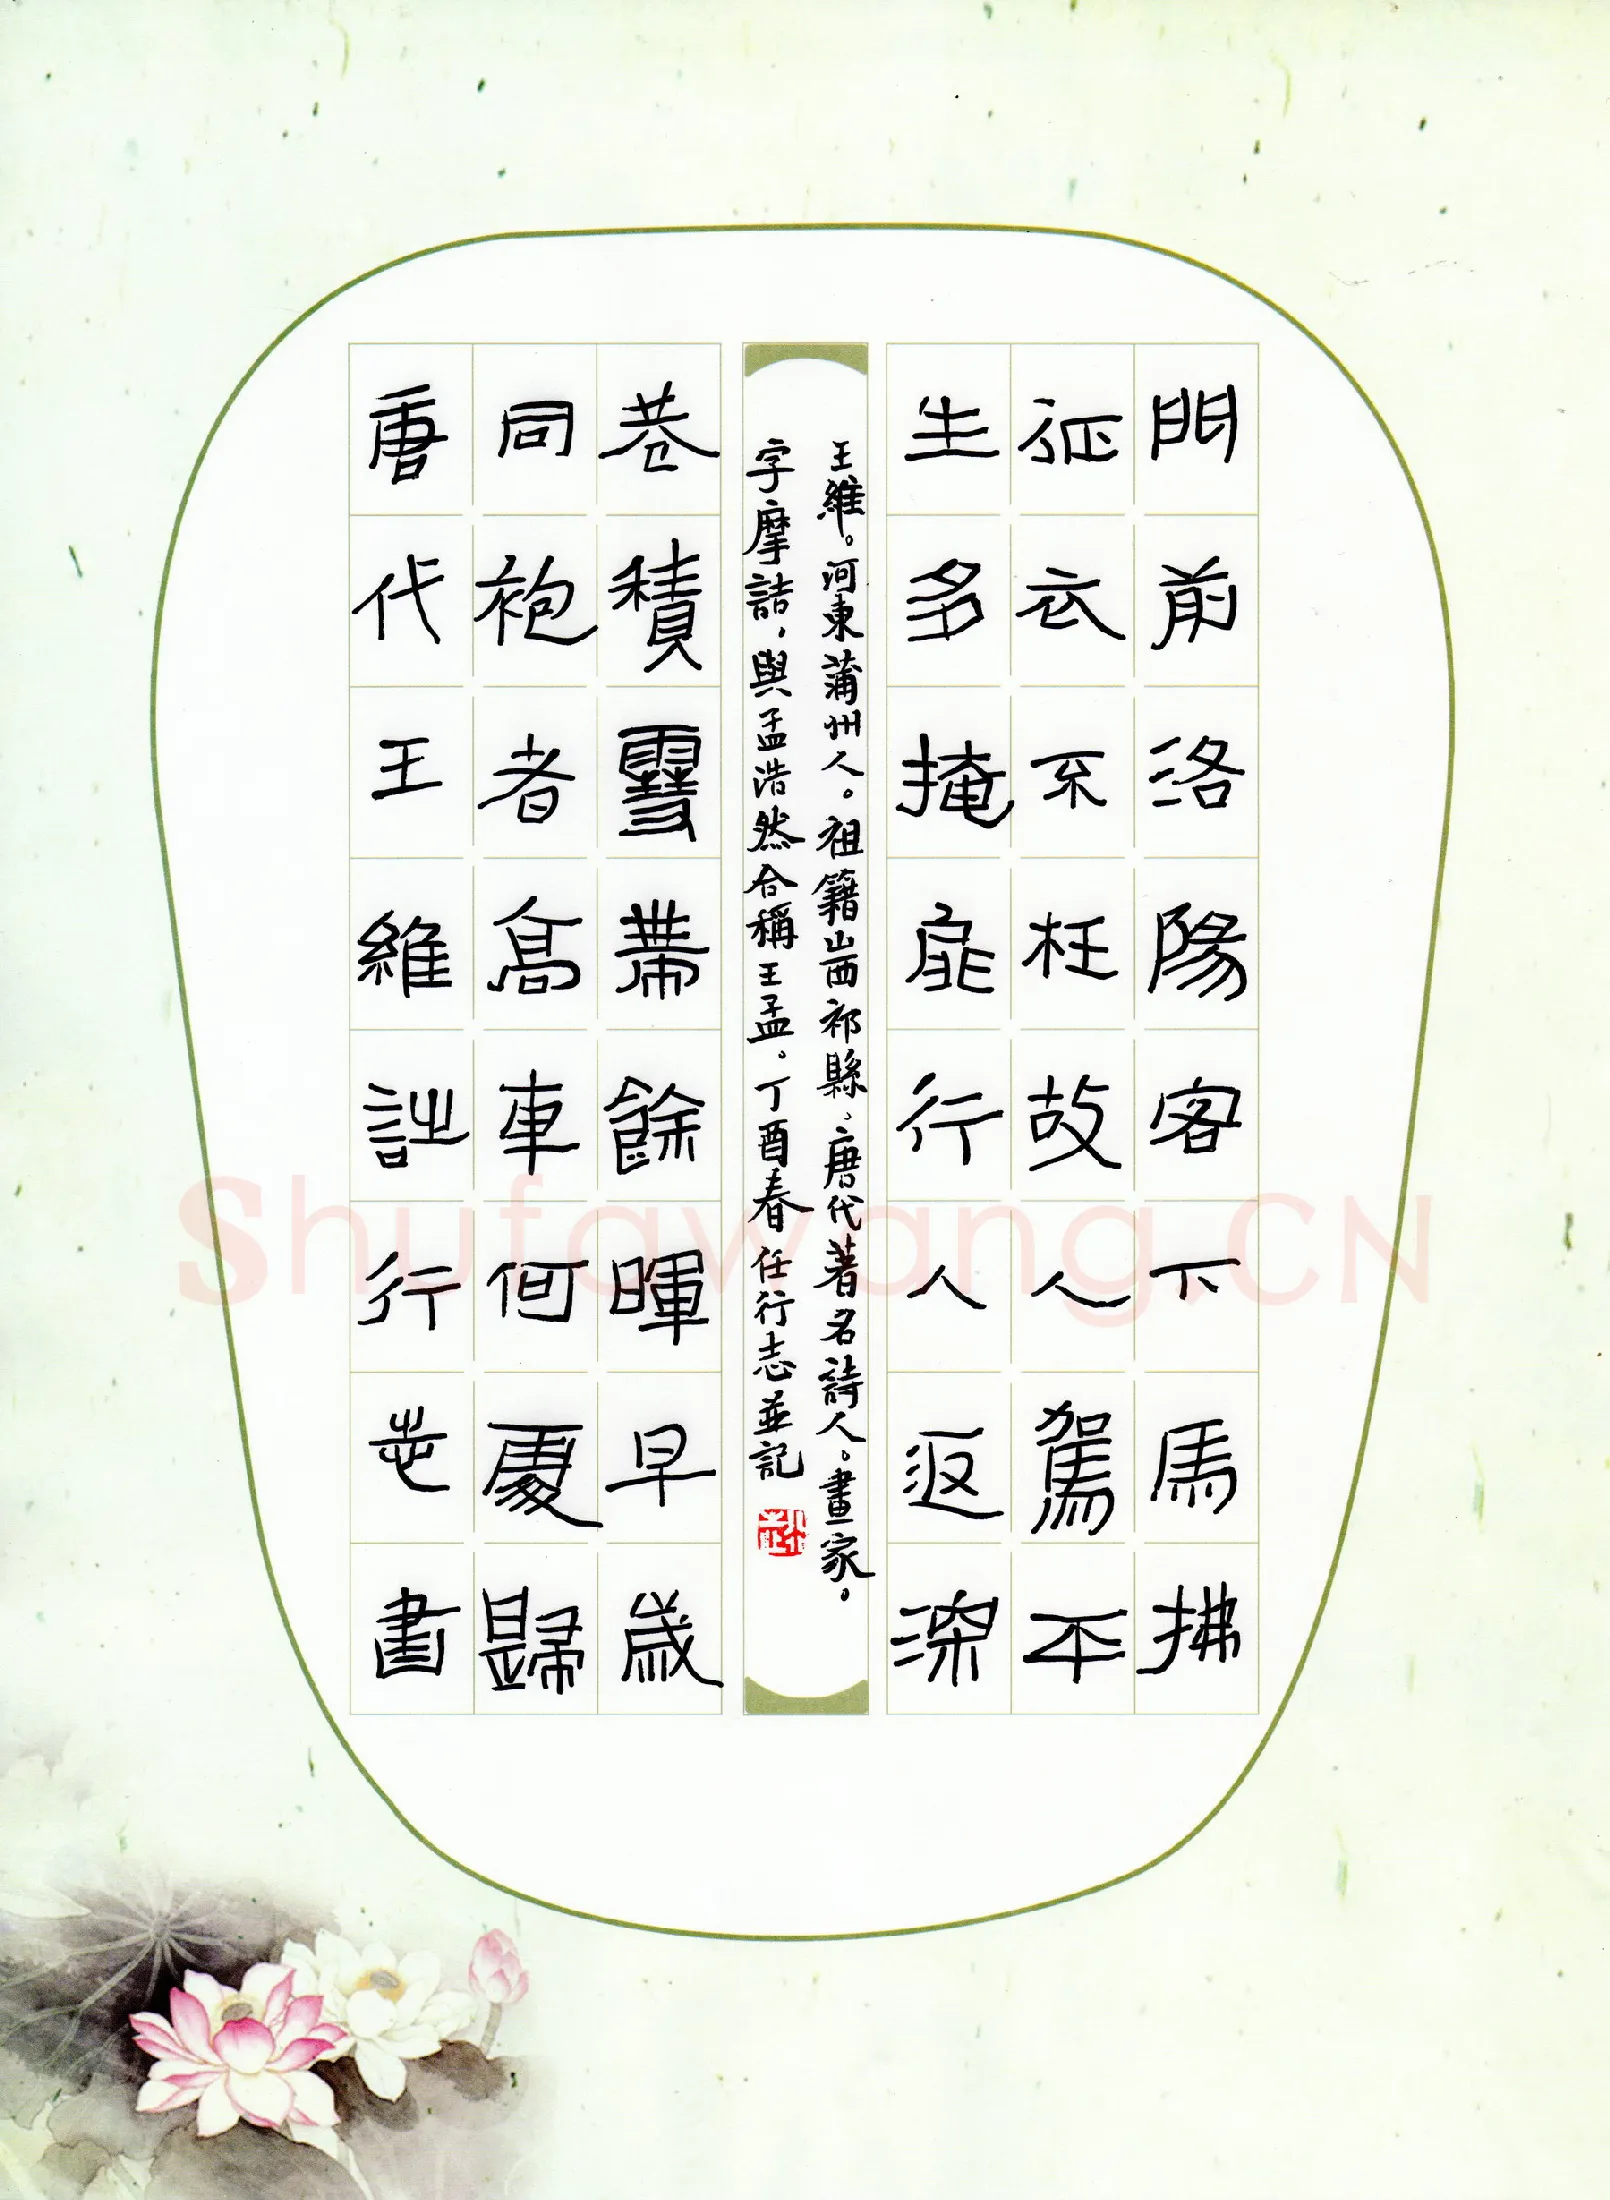 門前洛陽客下馬拂
征衣不枉故人駕平
生多掩扉行人返深
王維。河東蒲州人。祖籍山西祁縣、唐代著名詩人。畫家。
字摩詰，與孟浩然合稱王孟。丁酉春任行志並記
巷積雪帶餘暉早歲
同袍者高車何處歸
唐代王維詩行志書
Shufawang.CN